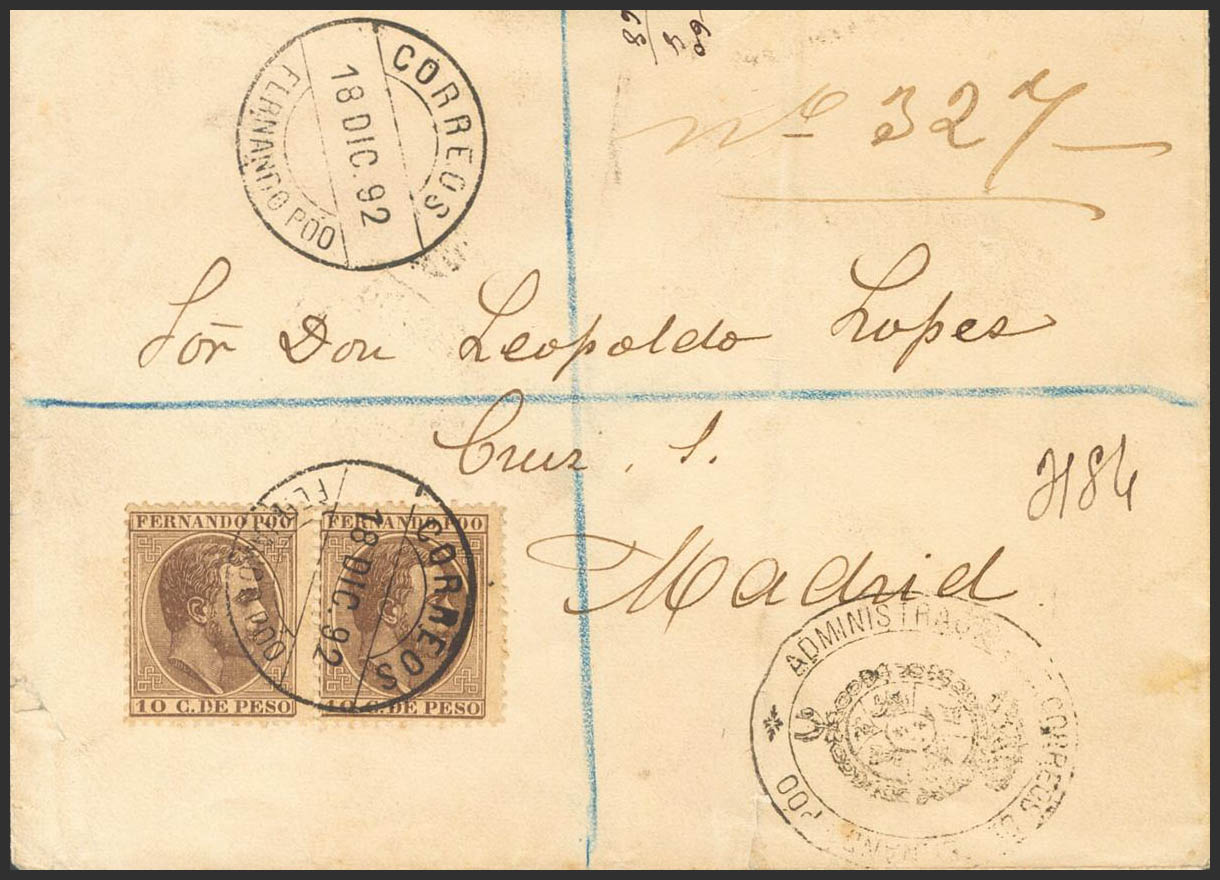 CORREOS
18 DIC. 92
FERNANDO POO
nº 327
Sor Don Leopoldo Lopes
Cruz, 1.
Madrid
FERNANDO POO
10 C. DE PESO
FERNANDO POO
10 C. DE PESO
CORREOS
18 DIC. 92
FERNANDO POO
ADMINISTRACION CORREOS DE FERNANDO POO